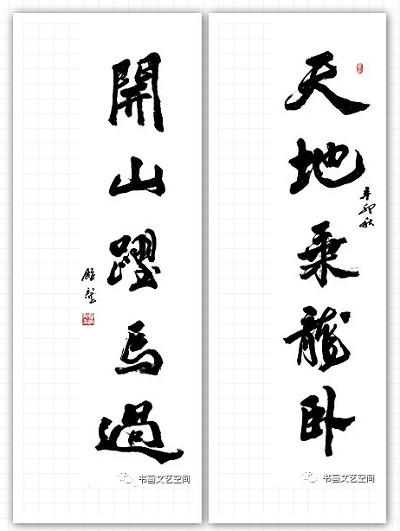 天地乘龍卧
辛卯秋
書画文艺空间
開山躍馬過
書画文艺空间